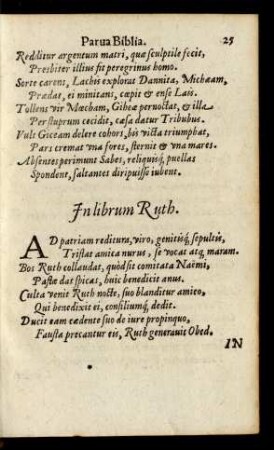 Parua Biblia. 25
Redditur argentum matri, quæ sculptile fecit,
Presbiter illius fit peregrinus homo.
Sorte carent, Lachis explorat Dannita, Michæam,
Prædat, ei minitant, cæpit & ense Lais.
Tollens vir Mæcham, Gibeæ pernoctat, & illa
Per stuprum cecidit, cæsa datur Tribubus.
Vult Giceam delere cohors, bis victa triumphat,
Pars cremat vna fores, sternit & vna mares.
Absentes perimunt Sabes, reliquisq; puellas
Spondent, saltantes diripuisse iubent.
In librum Ruth.
AD patriam reditura, viro, genitisq; sepultis,
Tristat amica nurus, se vocat atq; maram.
Bos Ruth collaudat, quòd sit comitata Naëmi,
Pastæ dat spicas, huic benedicit anus.
Culta venit Ruth nocte, suo blanditur amico,
Qui benedixit ei, consiliumq́; dedit.
Ducit eam cædente suo de iure propinquo,
Fausta precantur eis, Ruth generauit Obed.
IN